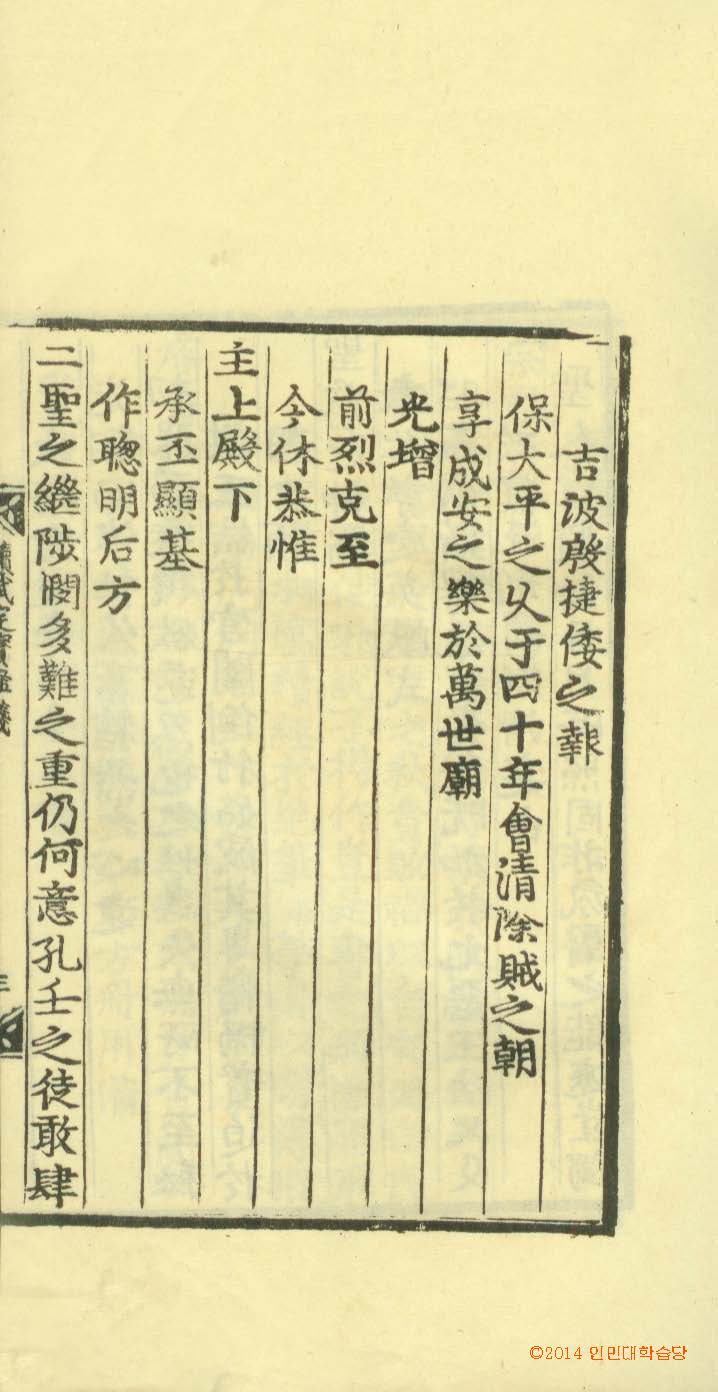 吉波啟捷倭之報
保大平之乆于四十年會清除賊之朝
享成安之樂於萬世廟
光增
前烈克至
今休恭惟
主上殿下
承丕顯基
作聰明后方
二聖之繼陟閔多難之重仍何意孔壬之徒敢肆
©2014 인민대학습당